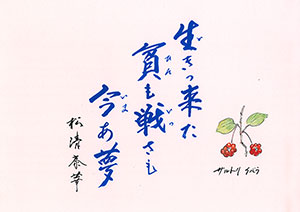 生きつ来た
貧も戦さも
今あ夢
松清泰華
サルトリイバラ